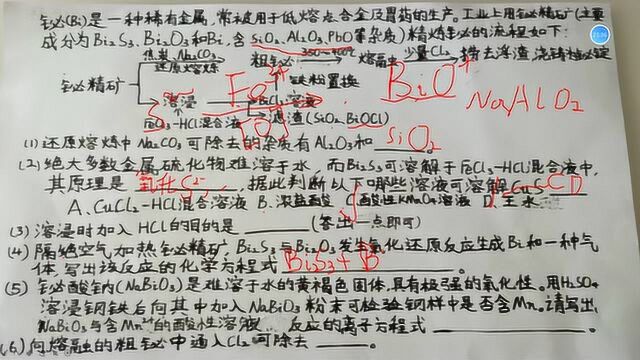 铋(Bi)是一种稀有金属,常被用于低熔点合金及胃药的生产。工业上用铋精矿(主要
成分为Bi₂S₃、Bi₂O₃和Bi,含SiO₂、Al₂O₃、PbO等杂质)精炼铋的流程如下:
焦炭 Na₂CO₃
还原熔炼
粗铋
熔融
少量Cl₂
捞去浮渣
铋精矿
铁粉置换
BiO⁺
溶浸
Fe³⁺
BiCl₃溶液
NaAlO₂
FeCl₃-HCl混合液
滤渣(SiO₂、BiOCl)
(1)还原熔炼中Na₂CO₃可除去的杂质有Al₂O₃和 SiO₂ 。
(2)绝大多数金属硫化物难溶于水,而Bi₂S₃可溶解于FeCl₃-HCl混合液中,
其原理是 氧化S²⁻ ,据此判断以下哪些溶液可溶解CuS CD
A、CuCl₂-HCl混合溶液 B、浓盐酸 C、酸性KMnO₄溶液 D、王水
(3)溶浸时加入HCl的目的是 (答出一点即可)
(4)隔绝空气加热铋精矿,Bi₂S₃与Bi₂O₃发生氧化还原反应生成Bi和一种气
体,写出该反应的化学方程式 Bi₂S₃+B 。
(5)铋酸钠(NaBiO₃)是难溶于水的黄褐色固体,具有极强的氧化性。用H₂SO₄
溶浸钢铁后向其中加入NaBiO₃粉末可检验钢样中是否含Mn。请写出
NaBiO₃与含Mn²⁺的酸性溶液 反应的离子方程式 。
(6)向熔融的粗铋中通入Cl₂可除去 。